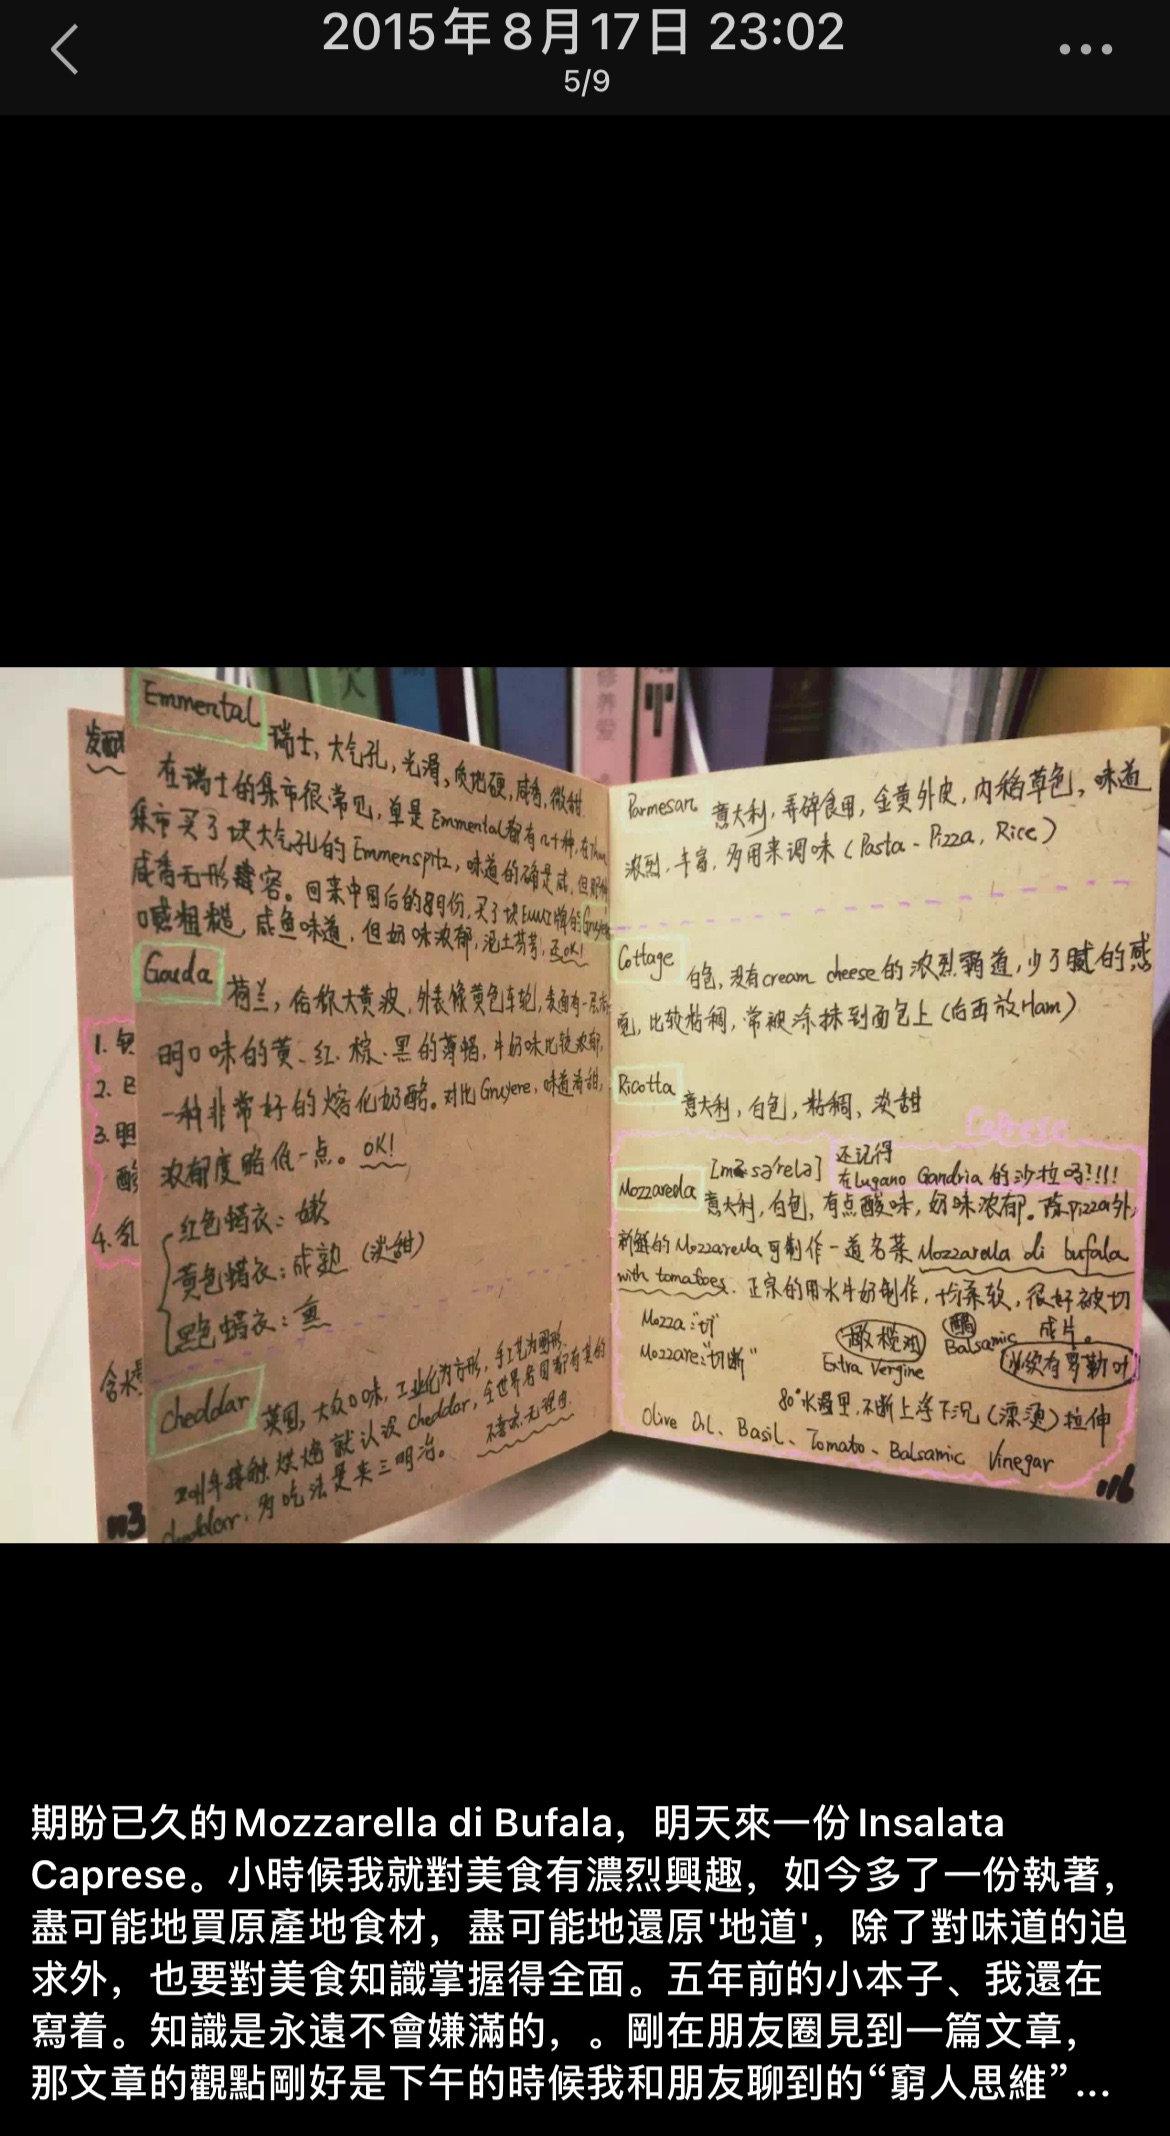 2015年8月17日 23:02
5/9
人
修养爱
Emmental
瑞士, 大气孔, 光滑, 质地硬, 咸香, 微甜
在瑞士的集市很常见, 单是Emmental都有几十种, 在Thun
集市买了块大气孔的Emmenspitz, 味道的确是咸, 但那种
咸香无形容。回来中国后的8月份, 买了块Emmi牌的Gruyere
口感粗糙, 咸鱼味道, 但奶味浓郁, 泥土芬芳, 还OK!
Gouda
荷兰, 俗称大黄波, 外表像黄色车轮, 表面有一层
明口味的黄、红、棕、黑的薄蜡, 牛奶味比较浓郁,
一种非常好的熔化奶酪。对比Gruyere, 味道清甜,
浓郁度略低一点。OK!
红色蜡衣: 嫩
黄色蜡衣: 成熟 (淡甜)
黑色蜡衣: 熏
Cheddar
英国, 大众口味, 工业化为方形, 手工艺为圆形.
2011年接触烘焙就认识cheddar, 全世界各国都有卖的
cheddar, 多吃法是夹三明治。 不喜欢, 无理由.
1.
2.
3.
4.
113
Parmesan 意大利, 弄碎食用, 金黄外皮, 内稻草色, 味道
浓烈, 丰富, 多用来调味 (Pasta、Pizza, Rice)
Cottage 白色, 没有cream cheese的浓烈霸道, 少了腻的感
觉, 比较粘稠, 常被涂抹到面包上 (后再放Ham)
Ricotta 意大利, 白色, 粘稠、淡甜
Caprese
还记得
在Lugano Gandria 的沙拉吗?!!!
Mozzarella
意大利, 白色, 有点酸味, 奶味浓郁。除pizza外,
新鲜的Mozzarella可制作一道名菜 Mozzarella di bufala
with tomatoes. 正宗的用水牛奶制作, 均柔软, 很好被切
成片。
Mozza: "切"
Mozzare: "切断"
橄榄油
Extra Vergine
醋
Balsamic
必须有罗勒叶
80°水温里, 不断上浮下沉 (漂烫) 拉伸
Olive Oil、Basil、Tomato、Balsamic Vinegar
116
期盼已久的Mozzarella di Bufala，明天來一份Insalata
Caprese。小時候我就對美食有濃烈興趣，如今多了一份執著，
盡可能地買原產地食材，盡可能地還原'地道'，除了對味道的追
求外，也要對美食知識掌握得全面。五年前的小本子、我還在
寫着。知識是永遠不會嫌滿的，。剛在朋友圈見到一篇文章，
那文章的觀點剛好是下午的時候我和朋友聊到的“窮人思維”...